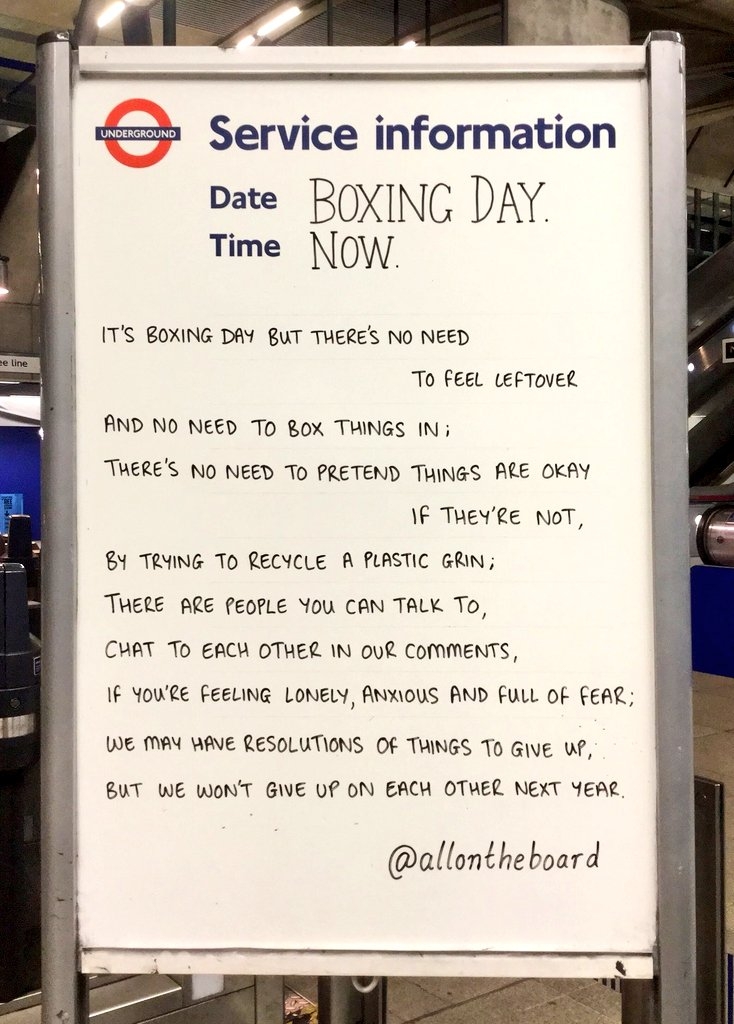 UNDERGROUND
Service information
Date BOXING DAY.
Time NOW.
IT'S BOXING DAY BUT THERE'S NO NEED
TO FEEL LEFTOVER
AND NO NEED TO BOX THINGS IN;
THERE'S NO NEED TO PRETEND THINGS ARE OKAY
IF THEY'RE NOT,
BY TRYING TO RECYCLE A PLASTIC GRIN;
THERE ARE PEOPLE YOU CAN TALK TO,
CHAT TO EACH OTHER IN OUR COMMENTS,
IF YOU'RE FEELING LONELY, ANXIOUS AND FULL OF FEAR;
WE MAY HAVE RESOLUTIONS OF THINGS TO GIVE UP,
BUT WE WON'T GIVE UP ON EACH OTHER NEXT YEAR.
@allontheboard
ee line